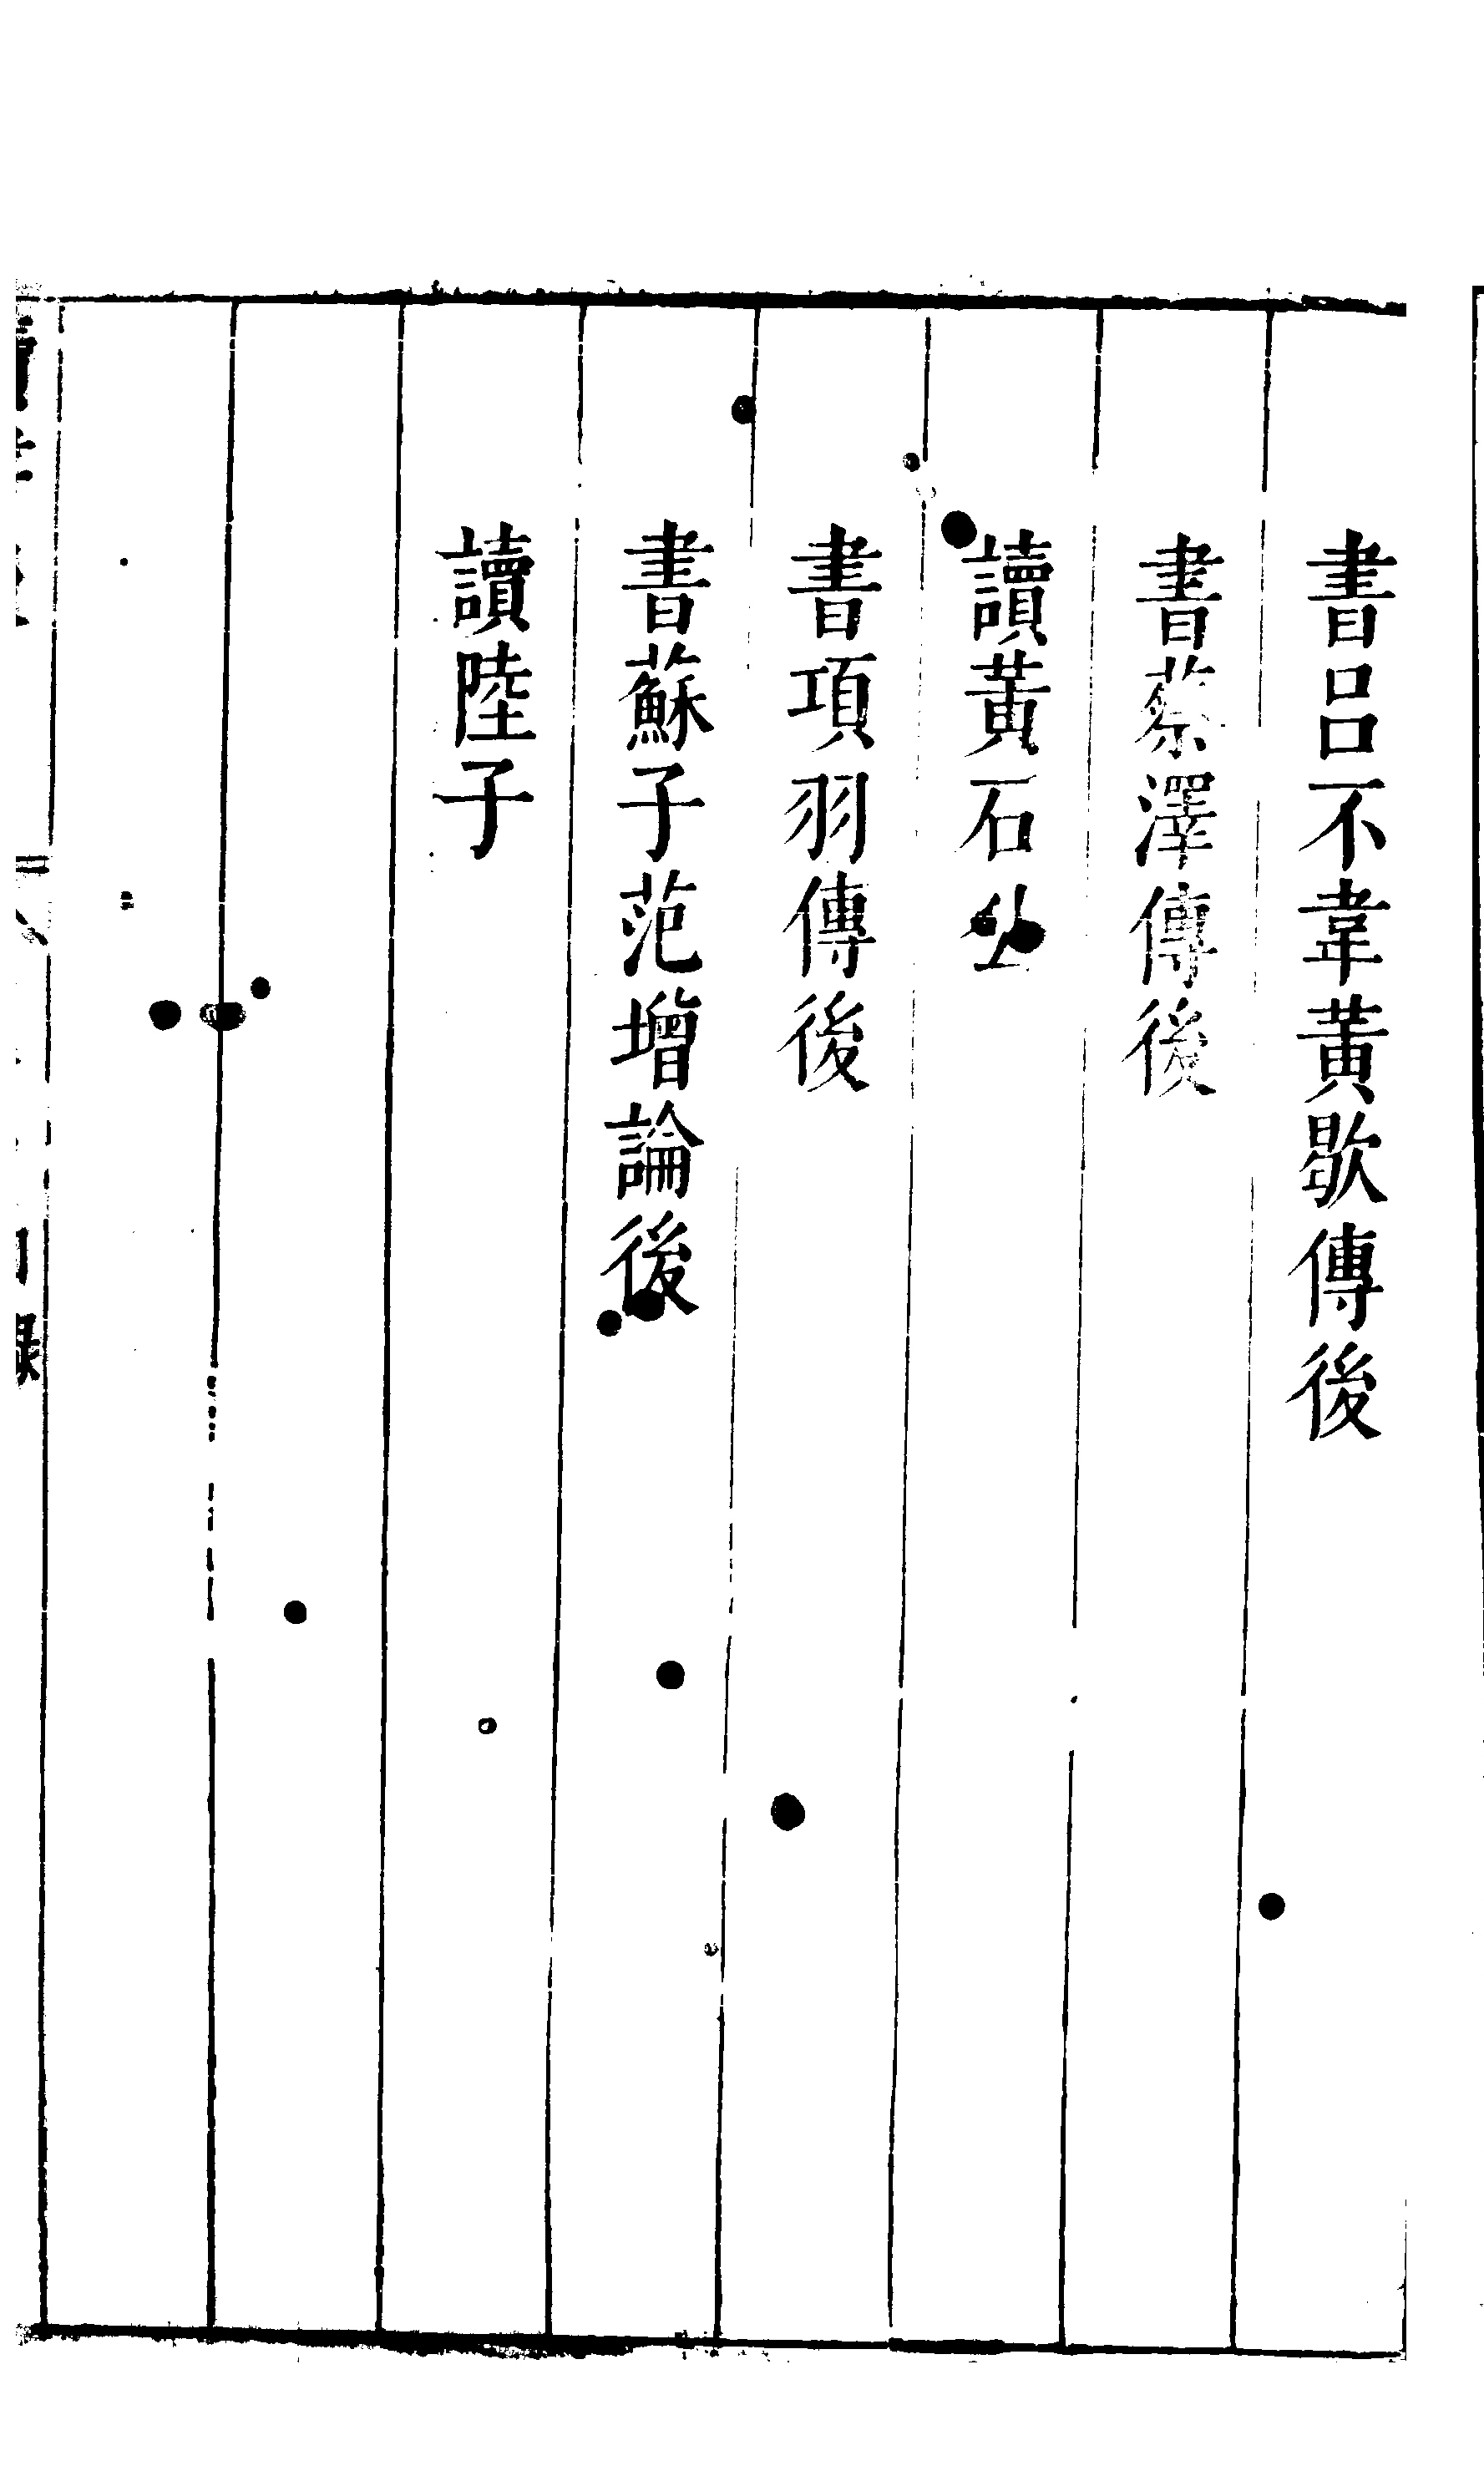 書吕不韋黃歇傳後
書蔡澤傳後
讀黃石公
書項羽傳後
書蘇子范增論後
讀陸子